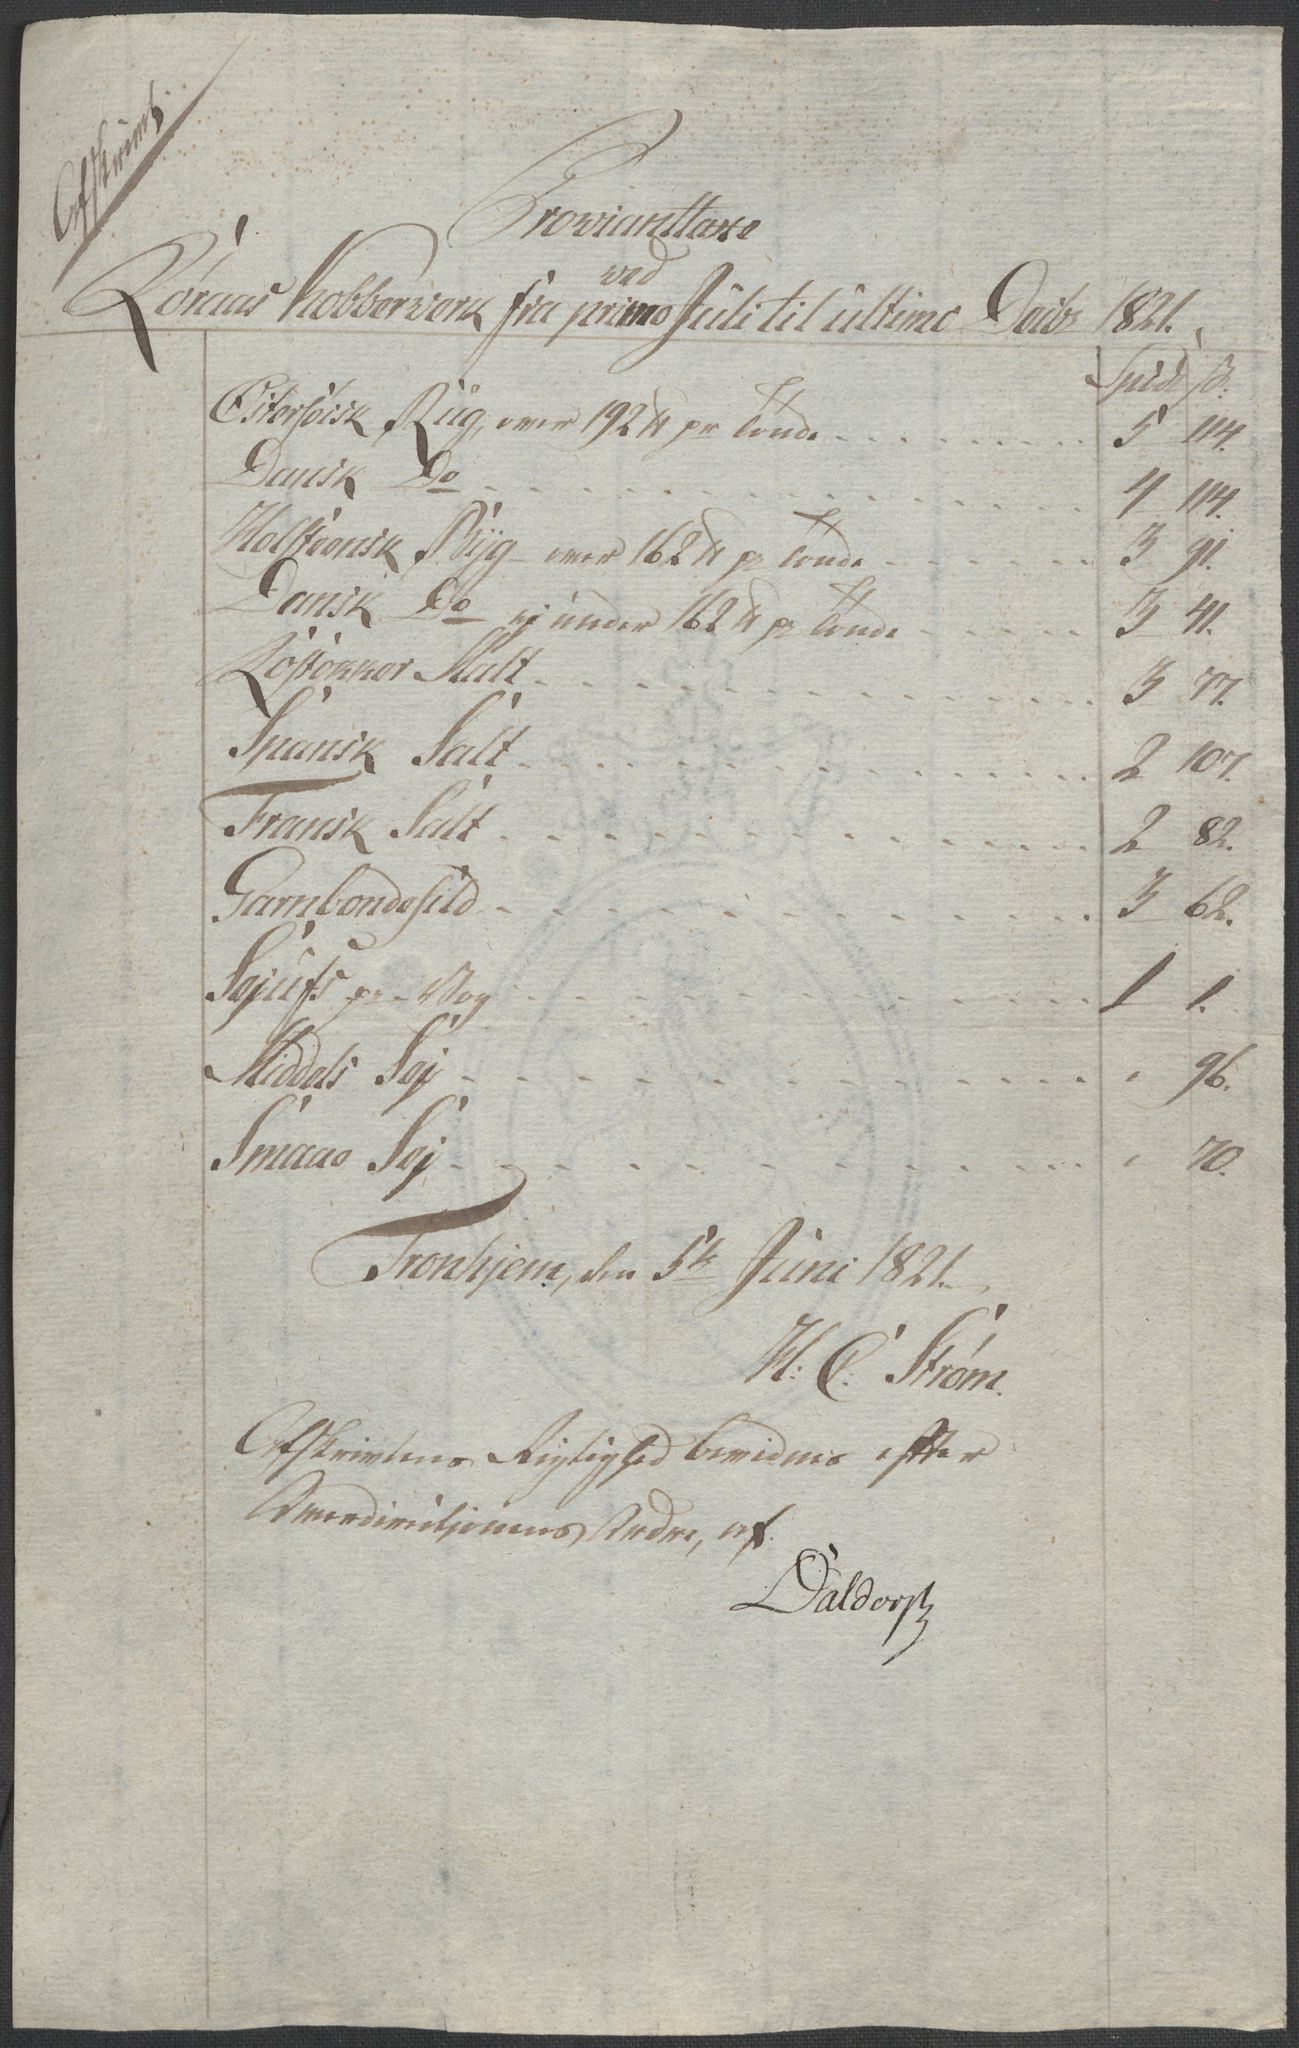 Afskrivt.
Provianttaxe
ved
Röraas Kobberverk fra primo Juli til ultimo Decbr 1821.
Spid. ß.
Østersöisk Rüg, over 192 ℔ pr Tönde 5 114.
Dansk Do 4 114.
Holsteensk Bÿg over 162 ℔ pr Tönde 3 91.
Dansk Do ej under 162 ℔ pr Tönde 3 41.
Malt 3 77.
Spansk Salt 2 107.
Fransk Salt 2 82.
Garnbondesild 3 62.
Sejüfs pr Vog 1 1.
Middels Sej " 96.
Smaae Sej " 70.
Tronhjem, den 5te Juni 1821.
H: C: Strøm.
Afskrivtens Rigtighed bevidnes efter
Overdirectionens Ordre, af
Daldorph